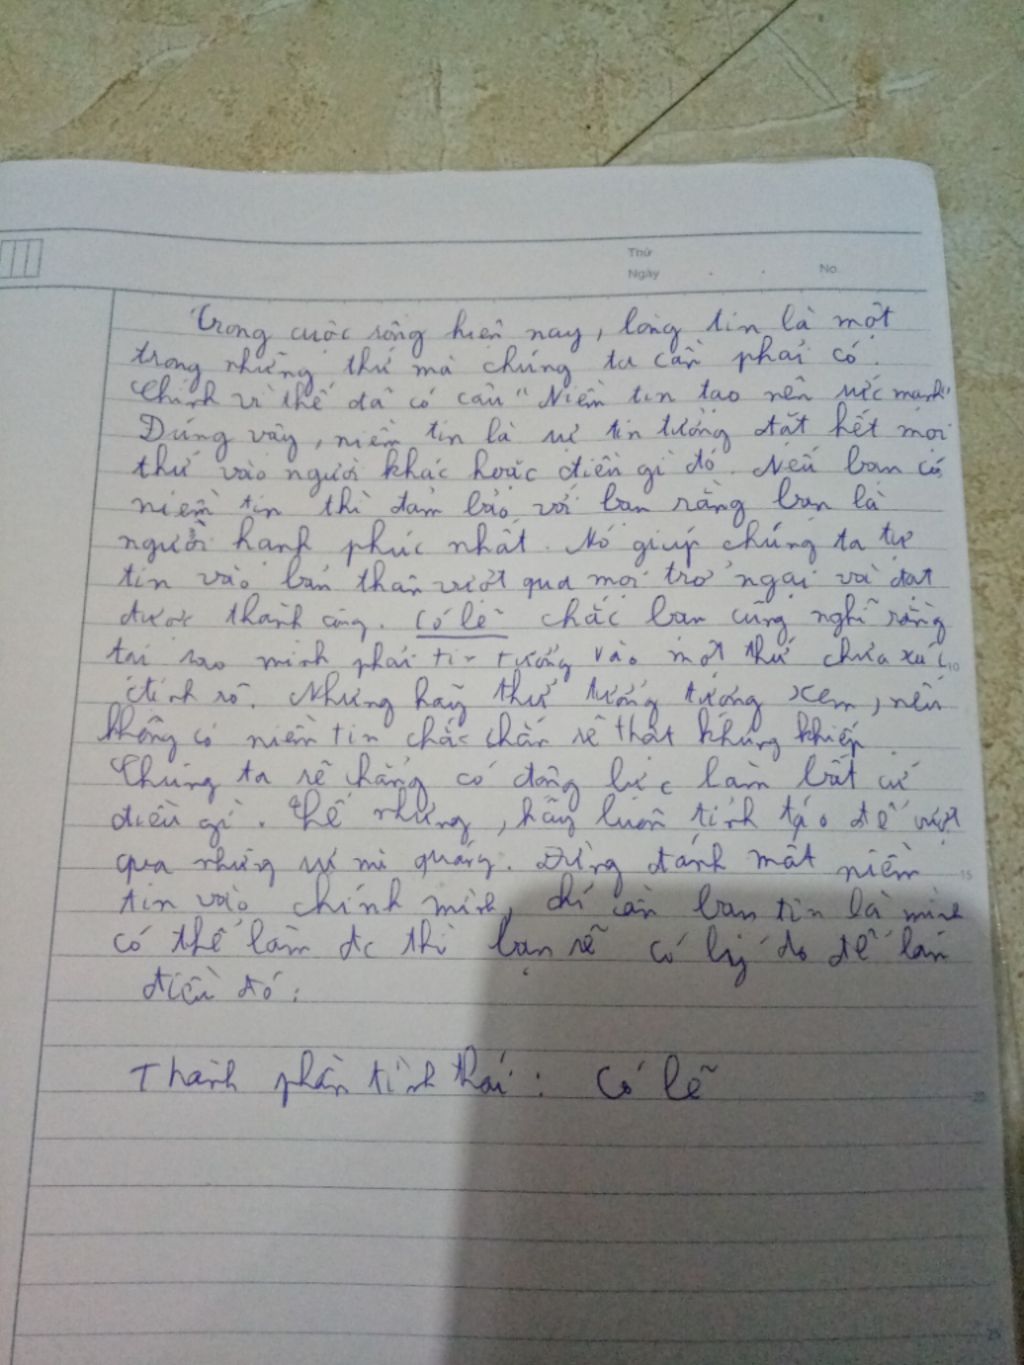 Thứ
Ngày . . No.
Trong cuộc sống hiện nay, lòng tin là một
trong những thứ mà chúng ta cần phải có.
Chính vì thế đã có câu "Niềm tin tạo nên sức mạnh"
Đúng vậy, niềm tin là sự tin tưởng đặt hết mọi
thứ vào người khác hoặc điều gì đó. Nếu bạn có
niềm tin thì đảm bảo với bạn rằng bạn là
người hạnh phúc nhất. Nó giúp chúng ta tự
tin vào bản thân vượt qua mọi trở ngại và đạt
được thành công. Có lẽ chắc bạn cũng nghĩ rằng
tại sao mình phải tin tưởng vào một thứ chưa xác
định rõ. Nhưng hãy thử tưởng tượng xem, nếu
không có niềm tin chắc chắn sẽ thật khủng khiếp.
Chúng ta sẽ chẳng có động lực làm bất cứ
điều gì. Thế nhưng, hãy luôn tỉnh táo để vượt
qua những sự mù quáng. Đừng đánh mất niềm
tin vào chính mình, chỉ cần bạn tin là mình
có thể làm đc thì bạn sẽ có lý do để làm
điều đó.
Thành phần tình thái: Có lẽ